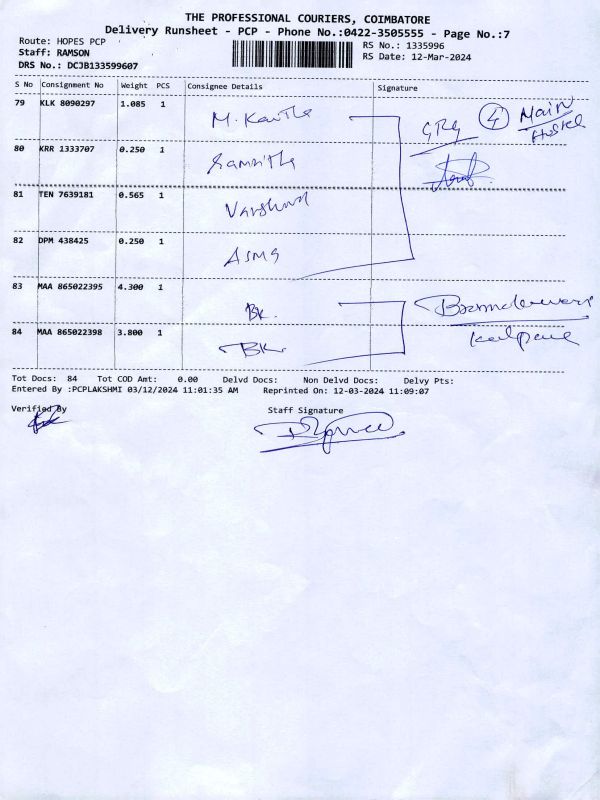 THE PROFESSIONAL COURIERS, COIMBATORE
Delivery Runsheet - PCP - Phone No.:0422-3505555 - Page No.:7
Route: HOPES PCP
RS No.: 1335996
Staff: RAMSON
RS Date: 12-Mar-2024
DRS No.: DCJB133599607
S No Consignment No Weight PCS Consignee Details Signature
79 KLK 8090297 1.085 1 M. Kavitha GRG 4 Main Hostel
80 KRR 1333707 0.250 1
81 TEN 7639181 0.565 1
82 DPM 438425 0.250 1 ASMG
83 MAA 865022395 4.300 1 BK.
84 MAA 865022398 3.800 1 BK.
Tot Docs: 84 Tot COD Amt: 0.00 Delvd Docs: Non Delvd Docs: Delvy Pts:
Entered By :PCPLAKSHMI 03/12/2024 11:01:35 AM Reprinted On: 12-03-2024 11:09:07
Verified By Staff Signature